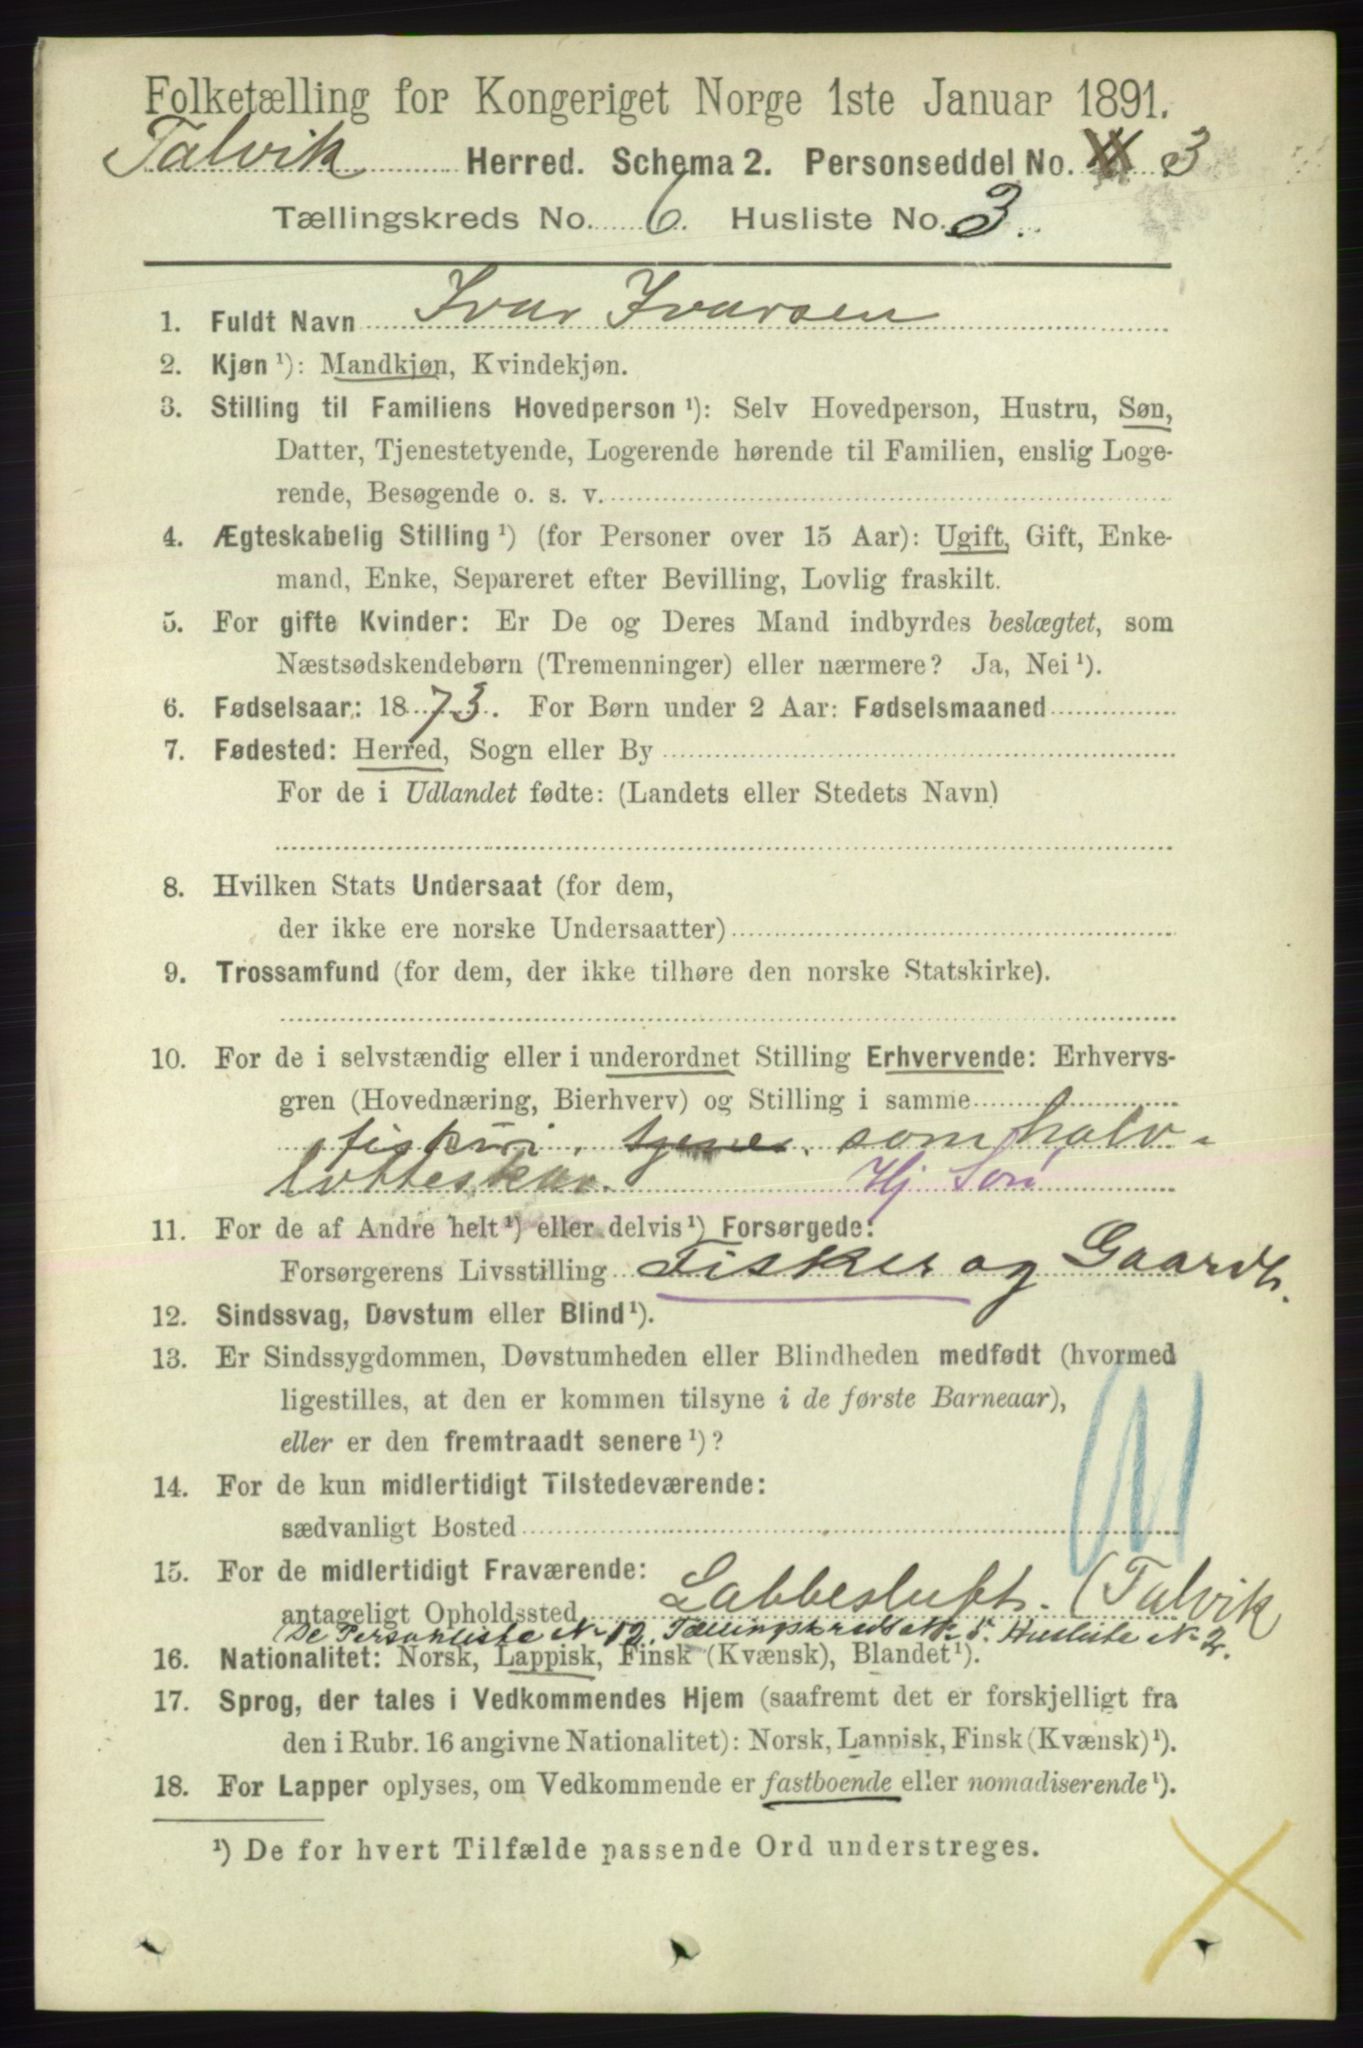 Folketælling for Kongeriget Norge 1ste Januar 1891.
Talvik Herred. Schema 2. Personseddel No. 3
Tællingskreds No. 6. Husliste No. 3.
1. Fuldt Navn Ivar Ivarsen
2. Kjøn ¹): Mandkjøn, Kvindekjøn.
3. Stilling til Familiens Hovedperson ¹): Selv Hovedperson, Hustru, Søn,
Datter, Tjenestetyende, Logerende hørende til Familien, enslig Loge-
rende, Besøgende o. s. v.
4. Ægteskabelig Stilling ¹) (for Personer over 15 Aar): Ugift, Gift, Enke-
mand, Enke, Separeret efter Bevilling, Lovlig fraskilt.
5. For gifte Kvinder: Er De og Deres Mand indbyrdes beslægtet, som
Næstsødskendebørn (Tremenninger) eller nærmere? Ja, Nei ¹).
6. Fødselsaar: 1873. For Børn under 2 Aar: Fødselsmaaned
7. Fødested: Herred, Sogn eller By
For de i Udlandet fødte: (Landets eller Stedets Navn)
8. Hvilken Stats Undersaat (for dem,
der ikke ere norske Undersaatter)
9. Trossamfund (for dem, der ikke tilhøre den norske Statskirke).
10. For de i selvstændig eller i underordnet Stilling Erhvervende: Erhvervs-
gren (Hovednæring, Bierhverv) og Stilling i samme
fiskeri, som halv-
lotteskar. Hj Søn
11. For de af Andre helt ¹) eller delvis ¹) Forsørgede:
Forsørgerens Livsstilling Fisker og Gaardb.
12. Sindssvag, Døvstum eller Blind ¹).
13. Er Sindssygdommen, Døvstumheden eller Blindheden medfødt (hvormed
ligestilles, at den er kommen tilsyne i de første Barneaar),
eller er den fremtraadt senere ¹)?
14. For de kun midlertidigt Tilstedeværende:
sædvanligt Bosted
15. For de midlertidigt Fraværende:
antageligt Opholdssted Labbesluft. (Talvik
(Se Personliste No 12. Tællingskreds No 5. Husliste No 2.
16. Nationalitet: Norsk, Lappisk, Finsk (Kvænsk), Blandet ¹).
17. Sprog, der tales i Vedkommendes Hjem (saafremt det er forskjelligt fra
den i Rubr. 16 angivne Nationalitet): Norsk, Lappisk, Finsk (Kvænsk) ¹).
18. For Lapper oplyses, om Vedkommende er fastboende eller nomadiserende ¹).
¹) De for hvert Tilfælde passende Ord understreges.